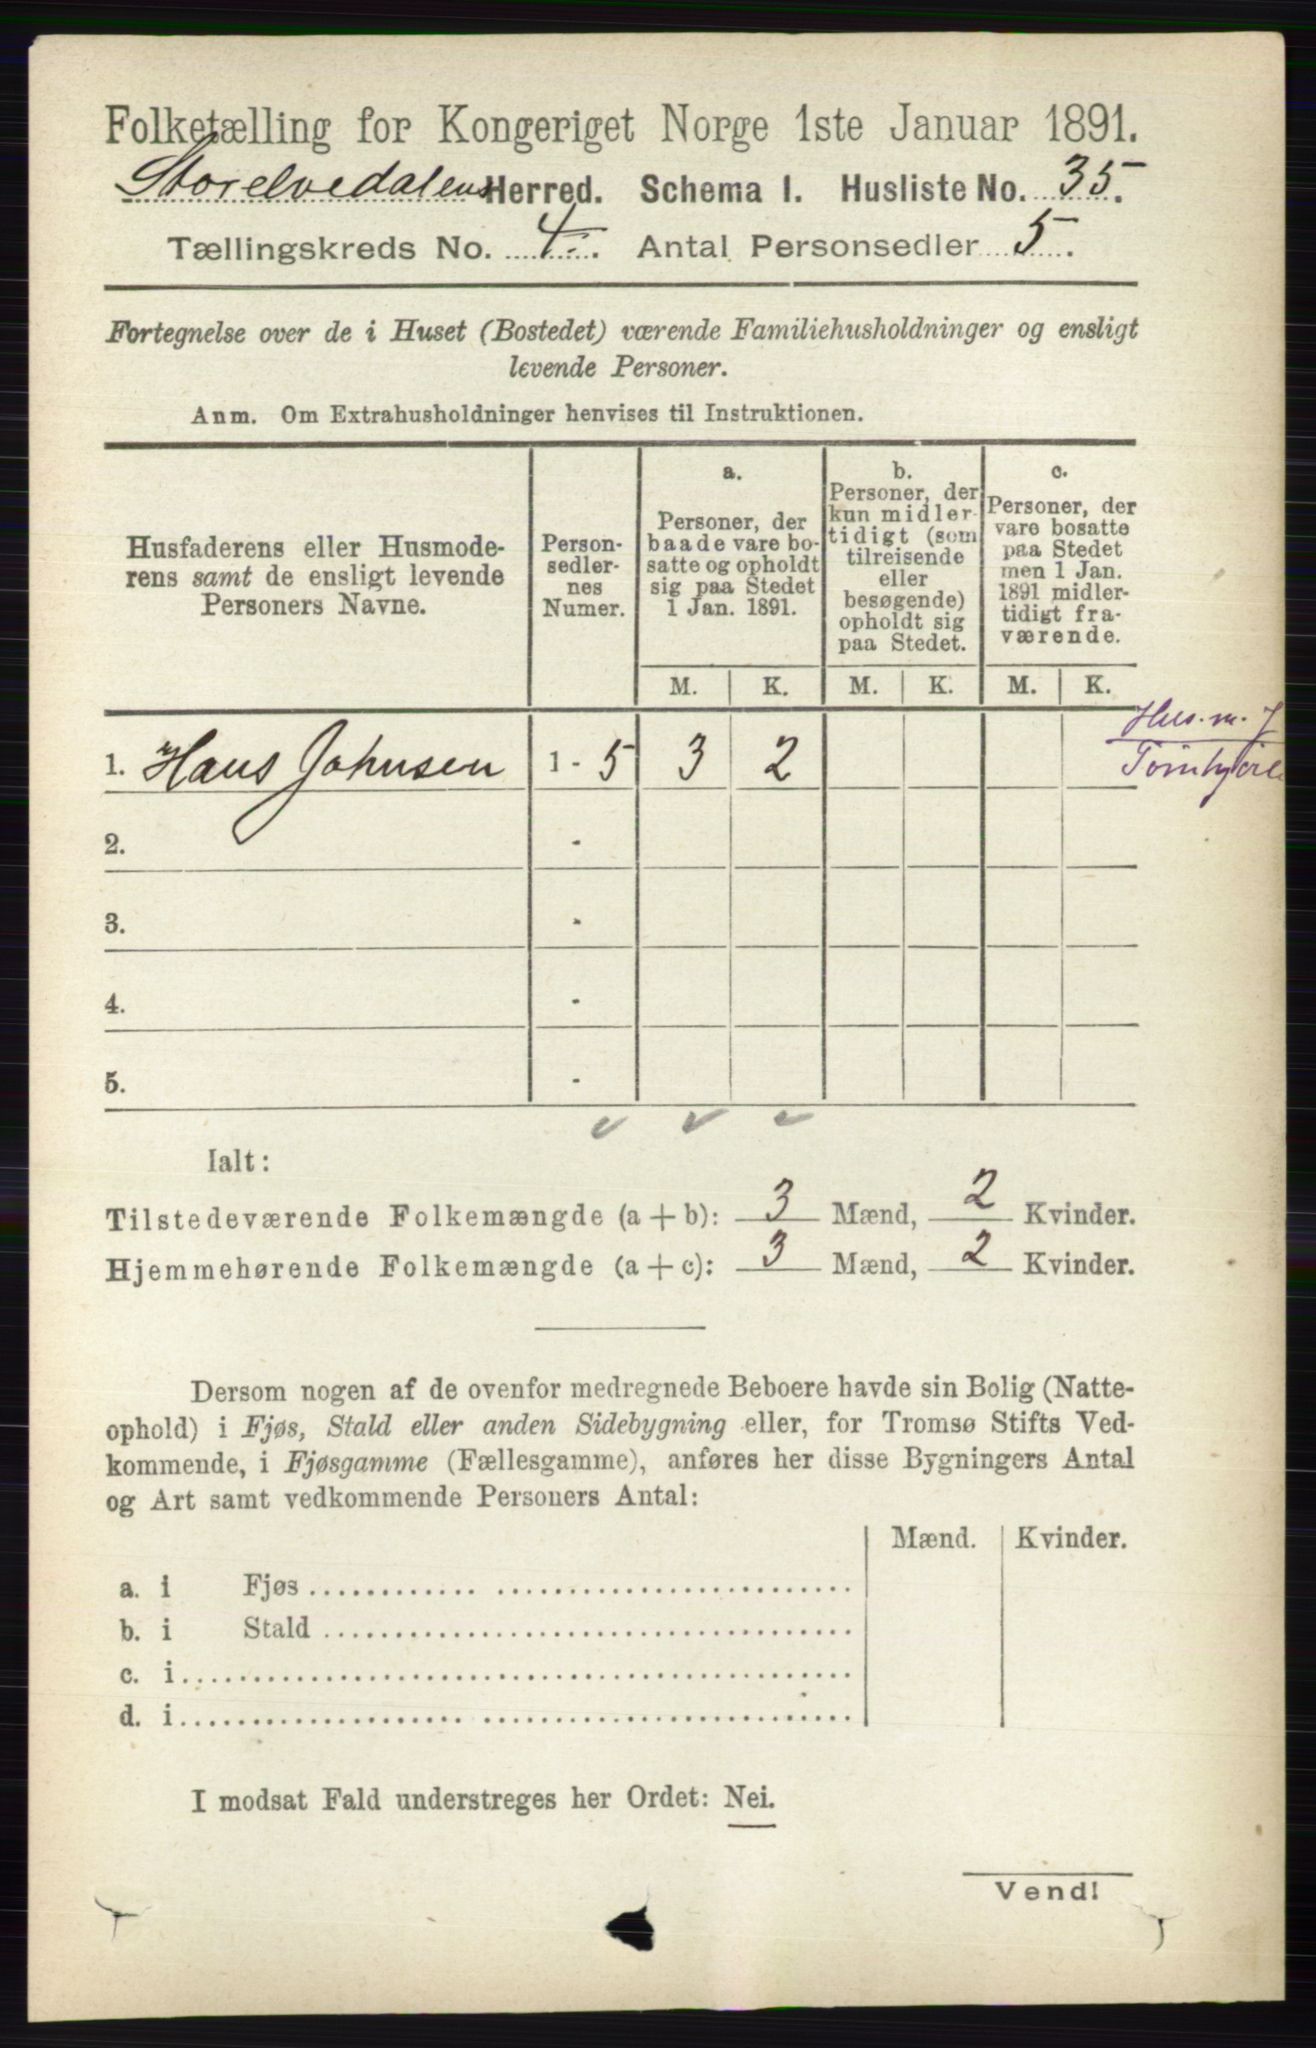 Folketælling for Kongeriget Norge 1ste Januar 1891.
Storelvedalens Herred. Schema I. Husliste No. 35.
Tællingskreds No. 4. Antal Personsedler 5.
Fortegnelse over de i Huset (Bostedet) værende Familiehusholdninger og ensligt
levende Personer.
Anm. Om Extrahusholdninger henvises til Instruktionen.
Husfaderens eller Husmode-
rens samt de ensligt levende
Personers Navne.
Person-
sedler-
nes
Numer.
a.
Personer, der
baade vare bo-
satte og opholdt
sig paa Stedet
1 Jan. 1891.
b.
Personer, der
kun midler-
tidigt (som
tilreisende
eller
besøgende)
opholdt sig
paa Stedet.
c.
Personer, der
vare bosatte
paa Stedet
men 1 Jan.
1891 midler-
tidigt fra-
værende.
M. K. M. K. M. K.
Hus. m. J
1. Hans Johnsen 1 - 5 3 2
2. -
3. -
4. -
5. -
Ialt:
Tilstedeværende Folkemængde (a + b): 3 Mænd, 2 Kvinder.
Hjemmehørende Folkemængde (a + c): 3 Mænd, 2 Kvinder.
Dersom nogen af de ovenfor medregnede Beboere havde sin Bolig (Natte-
ophold) i Fjøs, Stald eller anden Sidebygning eller, for Tromsø Stifts Ved-
kommende, i Fjøsgamme (Fællesgamme), anføres her disse Bygningers Antal
og Art samt vedkommende Personers Antal:
Mænd. Kvinder.
a. i Fjøs
b. i Stald
c. i
d. i
I modsat Fald understreges her Ordet: Nei.
Vend!